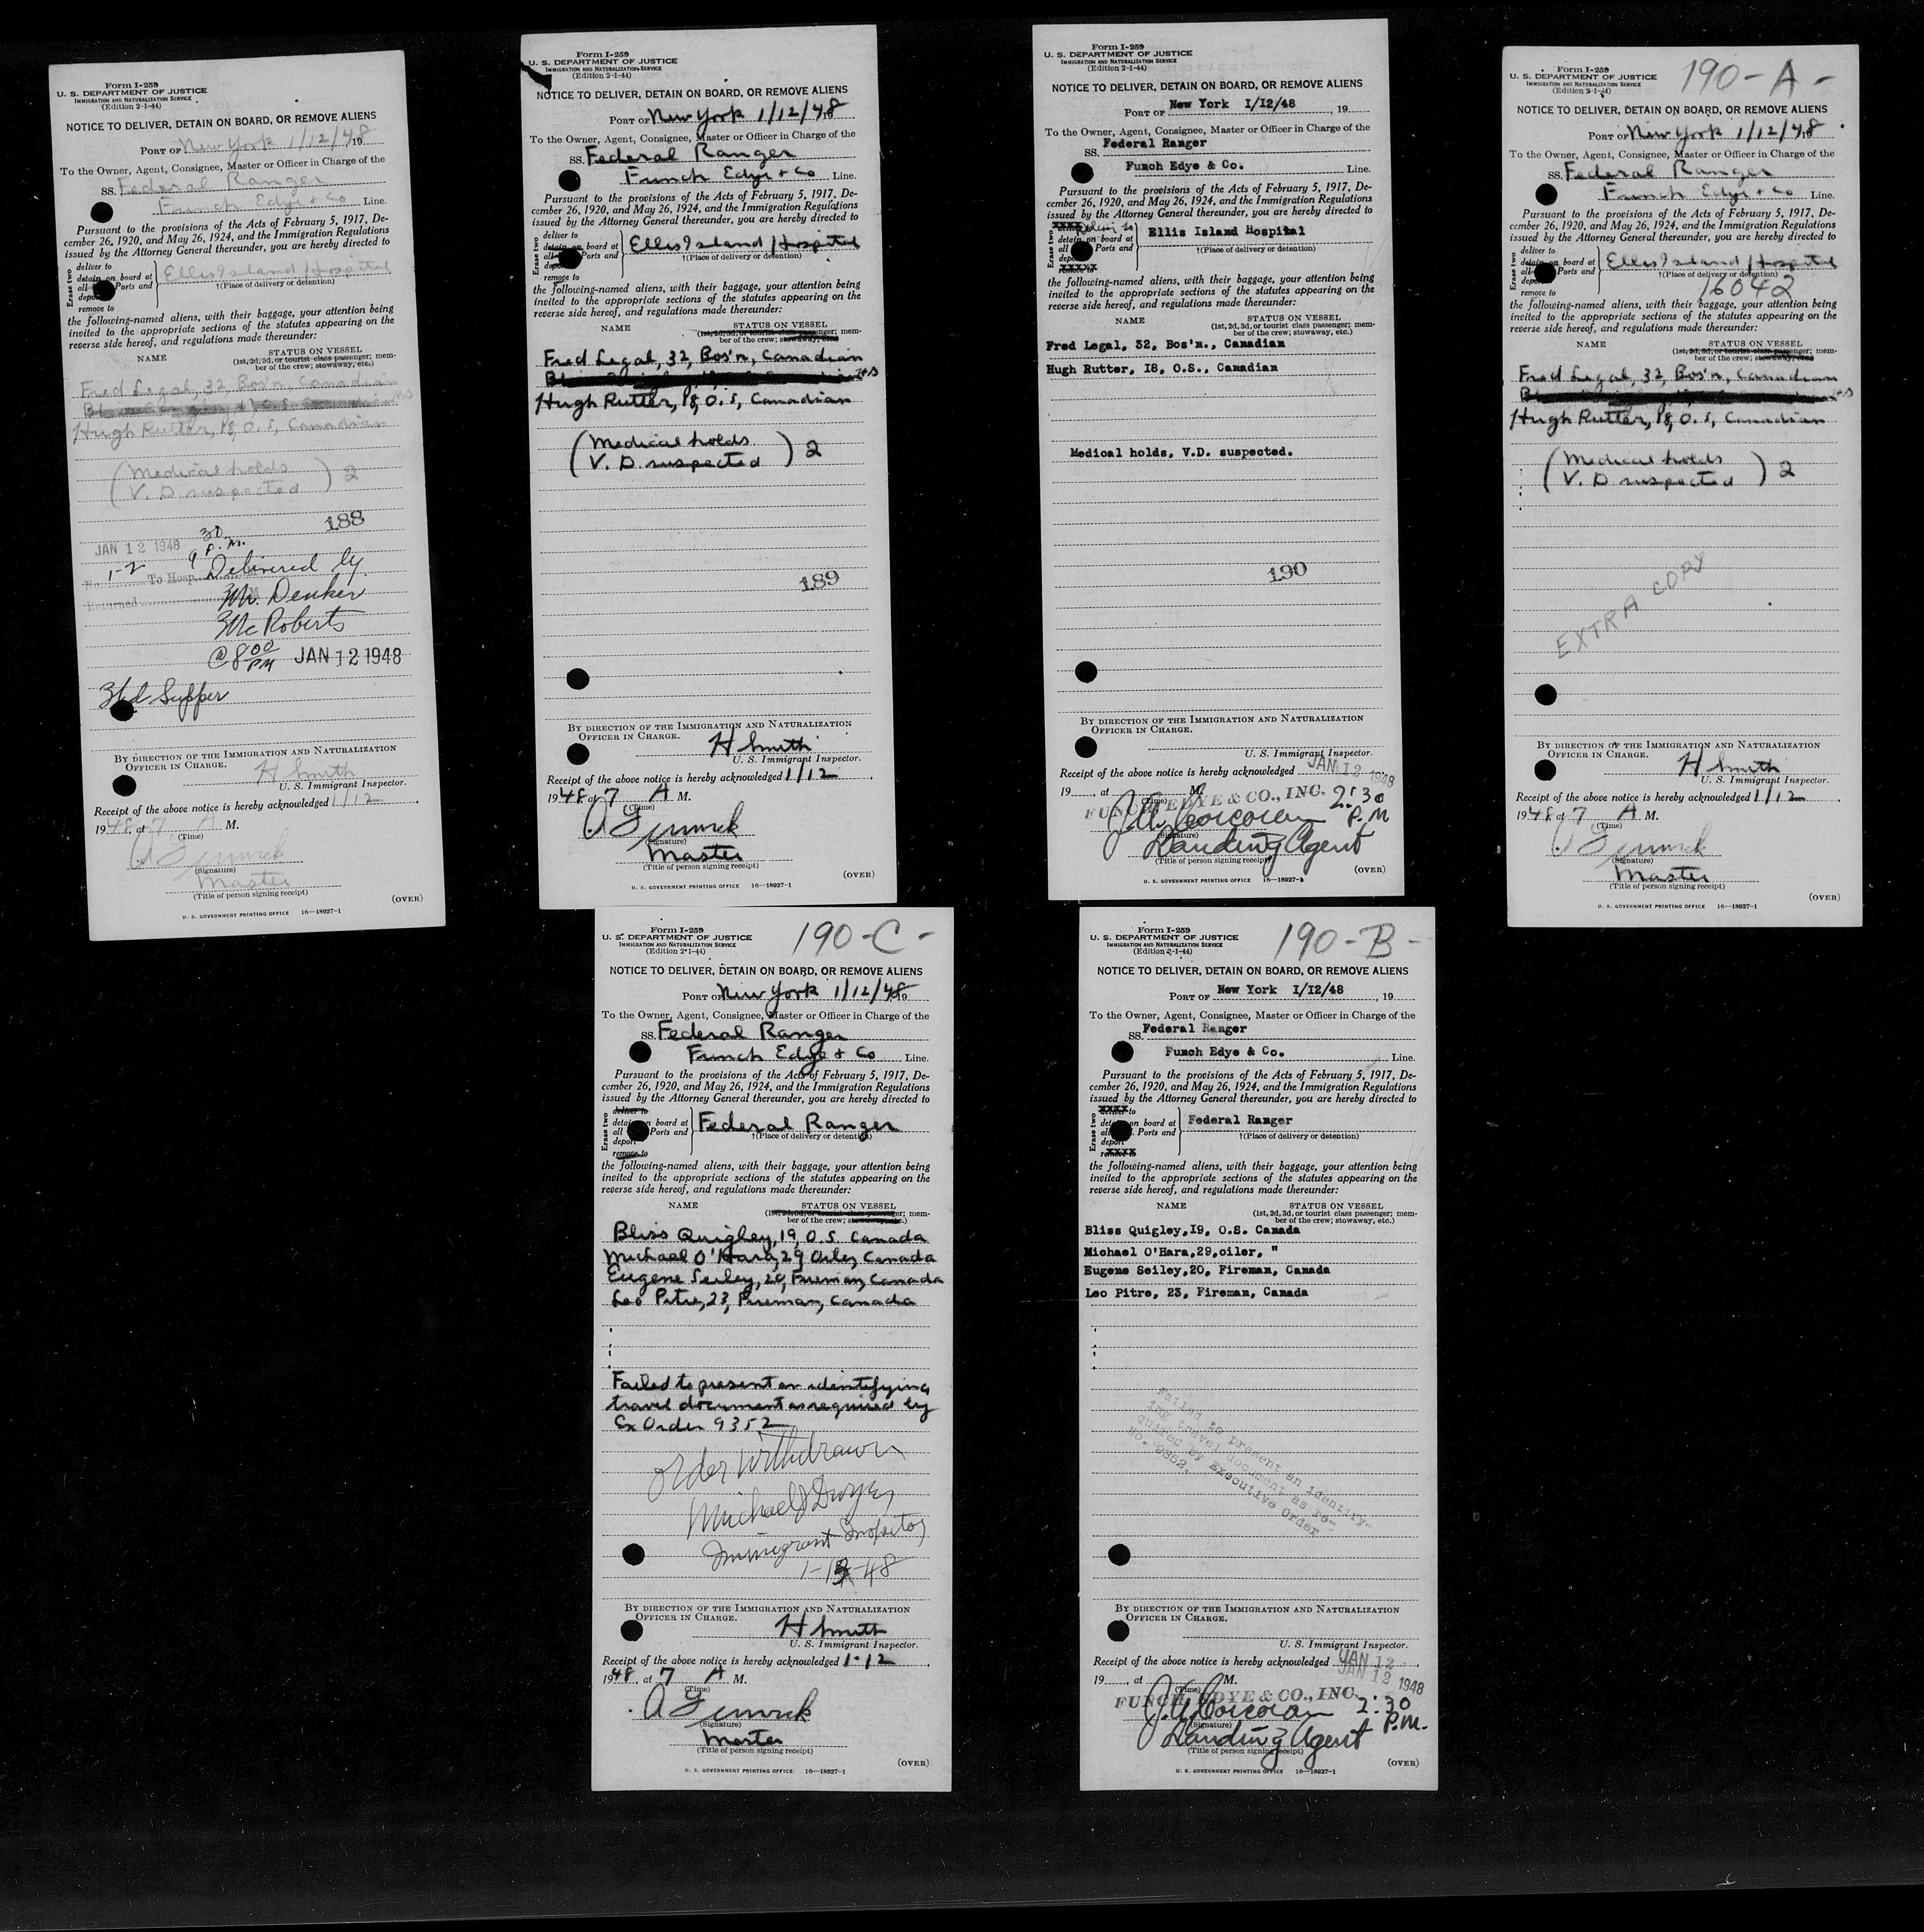 Form I-259
U. S. DEPARTMENT OF JUSTICE
IMMIGRATION AND NATURALIZATION SERVICE
(Edition 2-1-44)
NOTICE TO DELIVER, DETAIN ON BOARD, OR REMOVE ALIENS
PORT OF New York 1/12/48 19
To the Owner, Agent, Consignee, Master or Officer in Charge of the
SS. Federal Ranger
Funch Edye & Co Line.
Pursuant to the provisions of the Acts of February 5, 1917, De-
cember 26, 1920, and May 26, 1924, and the Immigration Regulations
issued by the Attorney General thereunder, you are hereby directed to
Erase two
deliver to
detain on board at
all Ports and
deport
remove to
Ellis Island Hospital
†(Place of delivery or detention)
the following-named aliens, with their baggage, your attention being
invited to the appropriate sections of the statutes appearing on the
reverse side hereof, and regulations made thereunder:
NAME STATUS ON VESSEL
(1st, 2d, 3d, or tourist class passenger; mem-
ber of the crew; stowaway, etc.)
Fred Legal, 32, Bos'n, Canadian
Hugh Rutter, 18, O.S, Canadian
(Medical holds
V. D suspected) 2
188
JAN 12 1948 9 30 P.M.
No. 1-2 To Hosp. Delivered by
Returned Mr. Denker
McRoberts
@ 8 00 PM JAN 12 1948
Had Supper
BY DIRECTION OF THE IMMIGRATION AND NATURALIZATION
OFFICER IN CHARGE.
H Smith
U. S. Immigrant Inspector.
Receipt of the above notice is hereby acknowledged 1/12,
1948, at 7 A M.
(Time)
(Signature)
Master
(Title of person signing receipt)
(OVER)
U. S. GOVERNMENT PRINTING OFFICE 16—18927-1
Form I-259
U. S. DEPARTMENT OF JUSTICE
IMMIGRATION AND NATURALIZATION SERVICE
(Edition 2-1-44)
NOTICE TO DELIVER, DETAIN ON BOARD, OR REMOVE ALIENS
PORT OF New York 1/12/48
To the Owner, Agent, Consignee, Master or Officer in Charge of the
SS. Federal Ranger
Funch Edye & Co Line.
Pursuant to the provisions of the Acts of February 5, 1917, De-
cember 26, 1920, and May 26, 1924, and the Immigration Regulations
issued by the Attorney General thereunder, you are hereby directed to
Erase two
deliver to
detain on board at
all Ports and
deport
remove to
Ellis Island Hospital
†(Place of delivery or detention)
the following-named aliens, with their baggage, your attention being
invited to the appropriate sections of the statutes appearing on the
reverse side hereof, and regulations made thereunder:
NAME STATUS ON VESSEL
(1st, 2d, 3d, or tourist class passenger; mem-
ber of the crew; stowaway, etc.)
Fred Legal, 32, Bos'n, Canadian
Hugh Rutter, 18, O.S, Canadian
(Medical holds
V. D. suspected) 2
189
BY DIRECTION OF THE IMMIGRATION AND NATURALIZATION
OFFICER IN CHARGE.
H Smith
U. S. Immigrant Inspector.
Receipt of the above notice is hereby acknowledged 1/12,
1948, at 7 A M.
(Time)
(Signature)
Master
(Title of person signing receipt)
(OVER)
U. S. GOVERNMENT PRINTING OFFICE 16—18927-1
Form I-259
U. S. DEPARTMENT OF JUSTICE
IMMIGRATION AND NATURALIZATION SERVICE
(Edition 2-1-44)
NOTICE TO DELIVER, DETAIN ON BOARD, OR REMOVE ALIENS
PORT OF New York I/I2/48, 19
To the Owner, Agent, Consignee, Master or Officer in Charge of the
SS. Federal Ranger
Funch Edye & Co. Line.
Pursuant to the provisions of the Acts of February 5, 1917, De-
cember 26, 1920, and May 26, 1924, and the Immigration Regulations
issued by the Attorney General thereunder, you are hereby directed to
Erase two
detain on board at
all Ports and
deport
remove to
Ellis Island Hospital
†(Place of delivery or detention)
the following-named aliens, with their baggage, your attention being
invited to the appropriate sections of the statutes appearing on the
reverse side hereof, and regulations made thereunder:
NAME STATUS ON VESSEL
(1st, 2d, 3d, or tourist class passenger; mem-
ber of the crew; stowaway, etc.)
Fred Legal, 32, Bos'n., Canadian
Hugh Rutter, I8, O.S., Canadian
Medical holds, V.D. suspected.
190
BY DIRECTION OF THE IMMIGRATION AND NATURALIZATION
OFFICER IN CHARGE.
U. S. Immigrant Inspector.
Receipt of the above notice is hereby acknowledged JAN 12 1948
19, at M. 2:30 P.M
(Time)
FUNCH EDYE & CO., INC.
J.A. Corcoran
(Signature)
Landing Agent
(Title of person signing receipt)
(OVER)
U. S. GOVERNMENT PRINTING OFFICE 16—18927-1
190-A-
Form I-259
U. S. DEPARTMENT OF JUSTICE
IMMIGRATION AND NATURALIZATION SERVICE
(Edition 2-1-44)
NOTICE TO DELIVER, DETAIN ON BOARD, OR REMOVE ALIENS
PORT OF New York 1/12/48 19
To the Owner, Agent, Consignee, Master or Officer in Charge of the
SS. Federal Ranger
Funch Edye & Co Line.
Pursuant to the provisions of the Acts of February 5, 1917, De-
cember 26, 1920, and May 26, 1924, and the Immigration Regulations
issued by the Attorney General thereunder, you are hereby directed to
Erase two
deliver to
detain on board at
all Ports and
deport
remove to
Ellis Island Hospital
†(Place of delivery or detention)
16042
the following-named aliens, with their baggage, your attention being
invited to the appropriate sections of the statutes appearing on the
reverse side hereof, and regulations made thereunder:
NAME STATUS ON VESSEL
(1st, 2d, 3d, or tourist class passenger; mem-
ber of the crew; stowaway, etc.)
Fred Legal, 32, Bos'n, Canadian
Hugh Rutter, 18, O.S, Canadian
(Medical holds
V. D suspected) 2
EXTRA COPY
BY DIRECTION OF THE IMMIGRATION AND NATURALIZATION
OFFICER IN CHARGE.
H Smith
U. S. Immigrant Inspector.
Receipt of the above notice is hereby acknowledged 1/12,
1948, at 7 A M.
(Time)
(Signature)
Master
(Title of person signing receipt)
(OVER)
U. S. GOVERNMENT PRINTING OFFICE 16—18927-1
190-C-
Form I-259
U. S. DEPARTMENT OF JUSTICE
IMMIGRATION AND NATURALIZATION SERVICE
(Edition 2-1-44)
NOTICE TO DELIVER, DETAIN ON BOARD, OR REMOVE ALIENS
PORT OF New York 1/12/48 19
To the Owner, Agent, Consignee, Master or Officer in Charge of the
SS. Federal Ranger
Funch Edye & Co Line.
Pursuant to the provisions of the Acts of February 5, 1917, De-
cember 26, 1920, and May 26, 1924, and the Immigration Regulations
issued by the Attorney General thereunder, you are hereby directed to
Erase two
deliver to
detain on board at
all Ports and
deport
remove to
Federal Ranger
†(Place of delivery or detention)
the following-named aliens, with their baggage, your attention being
invited to the appropriate sections of the statutes appearing on the
reverse side hereof, and regulations made thereunder:
NAME STATUS ON VESSEL
(1st, 2d, 3d, or tourist class passenger; mem-
ber of the crew; stowaway, etc.)
Bliss Quigley, 19, O.S. Canada
Michael O'Hara, 29 Oiler, Canada
Eugene Seiley, 20, Fireman, Canada
Leo Pitre, 23, Fireman, Canada
Failed to present an identifying
travel document as required by
Ex Order 9352
Order Withdrawn
Michael J Dwyer
Immigrant Inspector
1-13-48
BY DIRECTION OF THE IMMIGRATION AND NATURALIZATION
OFFICER IN CHARGE.
H Smith
U. S. Immigrant Inspector.
Receipt of the above notice is hereby acknowledged 1-12,
1948, at 7 A M.
(Time)
(Signature)
Master
(Title of person signing receipt)
(OVER)
U. S. GOVERNMENT PRINTING OFFICE 16—18927-1
190-B-
Form I-259
U. S. DEPARTMENT OF JUSTICE
IMMIGRATION AND NATURALIZATION SERVICE
(Edition 2-1-44)
NOTICE TO DELIVER, DETAIN ON BOARD, OR REMOVE ALIENS
PORT OF New York I/I2/48, 19
To the Owner, Agent, Consignee, Master or Officer in Charge of the
SS. Federal Ranger
Funch Edye & Co. Line.
Pursuant to the provisions of the Acts of February 5, 1917, De-
cember 26, 1920, and May 26, 1924, and the Immigration Regulations
issued by the Attorney General thereunder, you are hereby directed to
Erase two
deliver to
detain on board at
all Ports and
deport
remove to
Federal Ranger
†(Place of delivery or detention)
the following-named aliens, with their baggage, your attention being
invited to the appropriate sections of the statutes appearing on the
reverse side hereof, and regulations made thereunder:
NAME STATUS ON VESSEL
(1st, 2d, 3d, or tourist class passenger; mem-
ber of the crew; stowaway, etc.)
Bliss Quigley,I9, O.S. Canada
Michael O'Hara,29,oiler, "
Eugene Seiley,20, Fireman, Canada
Leo Pitre, 23, Fireman, Canada
Failed to present an identify-
ing travel document as re-
quired by Executive Order
No. 9352.
BY DIRECTION OF THE IMMIGRATION AND NATURALIZATION
OFFICER IN CHARGE.
U. S. Immigrant Inspector.
Receipt of the above notice is hereby acknowledged JAN 12
JAN 12 1948
19, at M.
(Time)
FUNCH EDYE & CO., INC. 2:30 P.M.
J.A. Corcoran
(Signature)
Landing Agent
(Title of person signing receipt)
(OVER)
U. S. GOVERNMENT PRINTING OFFICE 16—18927-1